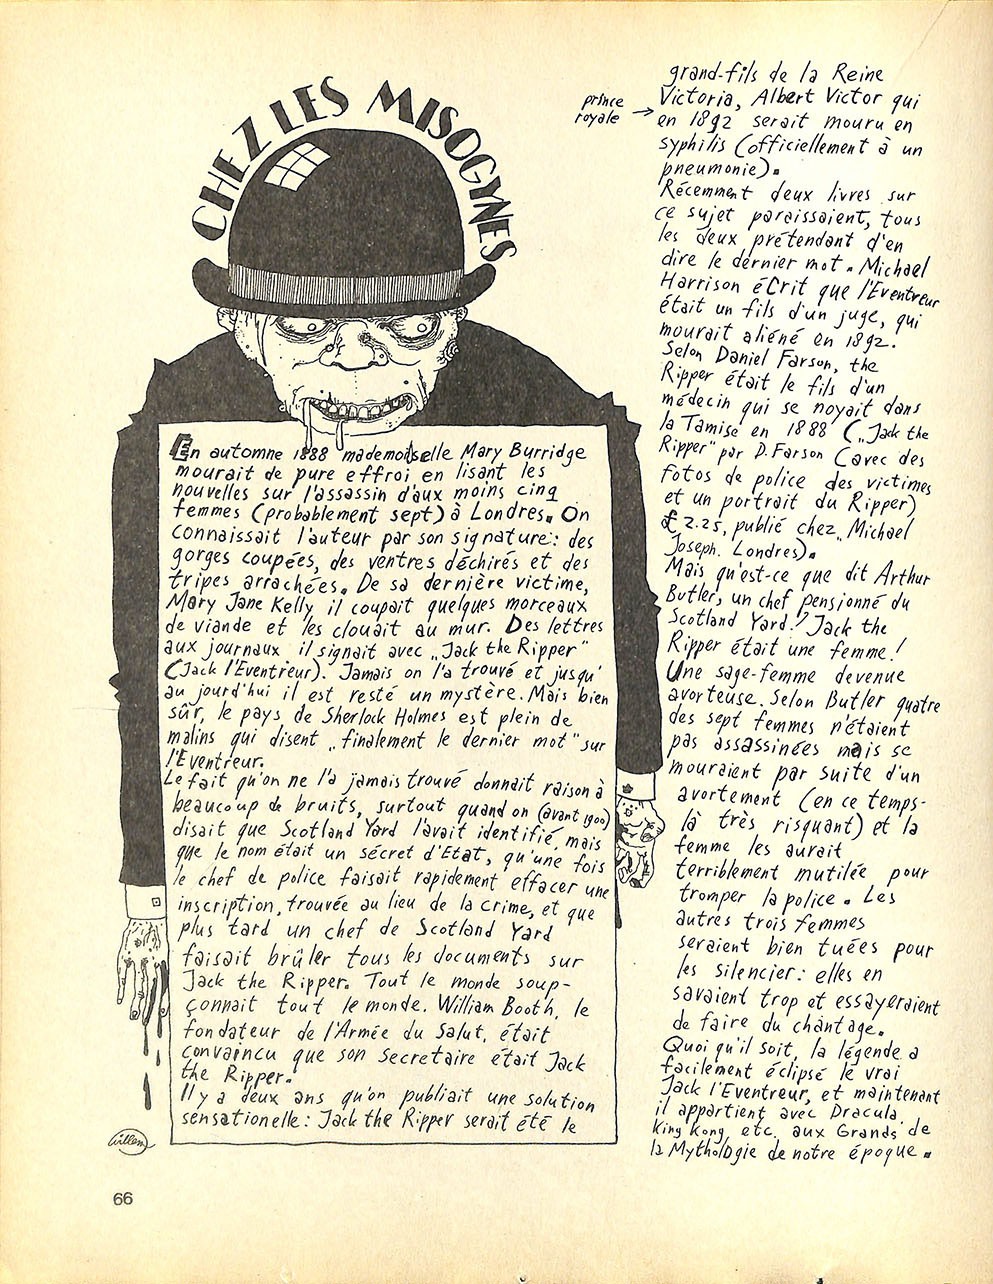 CHEZ LES MISOGYNES
En automne 1888 mademoiselle Mary Burridge
mourait de pure effroi en lisant les
nouvelles sur l'assassin d'aux moins cinq
femmes (probablement sept) à Londres. On
connaissait l'auteur par son signature: des
gorges coupées, des ventres déchirés et des
tripes arrachées. De sa dernière victime,
Mary Jane Kelly il coupait quelques morceaux
de viande et les clouait au mur. Des lettres
aux journaux il signait avec „Jack the Ripper"
(Jack l'Eventreur). Jamais on l'a trouvé et jusqu'
au jourd'hui il est resté un mystère. Mais bien
sûr, le pays de Sherlock Holmes est plein de
malins qui disent „finalement le dernier mot" sur
l'Eventreur.
Le fait qu'on ne l'a jamais trouvé donnait raison à
beaucoup de bruits, surtout quand on (avant 1900)
disait que Scotland Yard l'avait identifié, mais
que le nom était un sécret d'Etat, qu'une fois
le chef de police faisait rapidement effacer une
inscription, trouvée au lieu de la crime, et que
plus tard un chef de Scotland Yard
faisait brûler tous les documents sur
Jack the Ripper. Tout le monde soup-
çonnait tout le monde. William Booth, le
fondateur de l'Armée du Salut, était
convaincu que son secretaire était Jack
the Ripper.
Il y a deux ans qu'on publiait une solution
sensationelle: Jack the Ripper serait été le
prince
royale →
grand-fils de la Reine
Victoria, Albert Victor qui
en 1892 serait mouru en
syphilis (officiellement à un
pneumonie).
Récemment deux livres sur
ce sujet paraissaient, tous
les deux prétendant d'en
dire le dernier mot. Michael
Harrison écrit que l'Eventreur
était un fils d'un juge, qui
mourait aliéné en 1892.
Selon Daniel Farson, the
Ripper était le fils d'un
médecin qui se noyait dans
la Tamise en 1888 („Jack the
Ripper" par D. Farson (avec des
fotos de police des victimes
et un portrait du Ripper)
£ 2.25, publié chez Michael
Joseph. Londres).
Mais qu'est-ce que dit Arthur
Butler, un chef pensionné du
Scotland Yard? Jack the
Ripper était une femme!
Une sage-femme devenue
avorteuse. Selon Butler quatre
des sept femmes n'étaient
pas assassinées mais se
mouraient par suite d'un
avortement (en ce temps-
là très risquant) et la
femme les aurait
terriblement mutilée pour
tromper la police. Les
autres trois femmes
seraient bien tuées pour
les silencier: elles en
savaient trop et essayeraient
de faire du chantage.
Quoi qu'il soit, la légende a
facilement éclipsé le vrai
Jack l'Eventreur, et maintenant
il appartient avec Dracula,
King Kong, etc. aux Grands de
la Mythologie de notre époque.
Willem
66